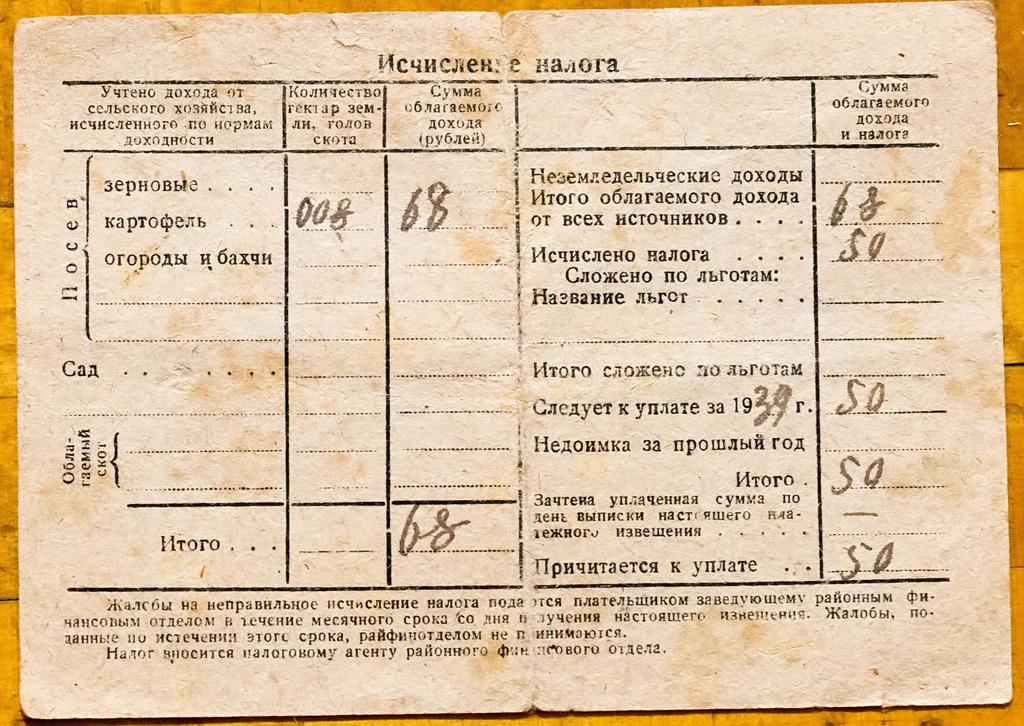 Исчисление налога
Учтено дохода от
сельского хозяйства,
исчисленного по нормам
доходности
Количество
гектар зем-
ли, голов
скота
Сумма
облагаемого
дохода
(рублей)
Сумма
облагаемого
дохода
и налога
Посев
зерновые . . . .
картофель . . . 008 68
огороды и бахчи
Сад . . . . . . . .
Обла-
гаемый
скот
Итого . . . 68
Неземледельческие доходы
Итого облагаемого дохода
от всех источников . . . . 68
Исчислено налога . . . . 50
Сложено по льготам:
Название льгот . . . . .
Итого сложено по льготам
Следует к уплате за 1939 г. 50
Недоимка за прошлый год
Итого . 50
Зачтена уплаченная сумма по
день выписки настоящего пла-
тежного извещения . . . . . —
Причитается к уплате . . . 50
Жалобы на неправильное исчисление налога подаются плательщиком заведующему районным фи-
нансовым отделом в течение месячного срока со дня получения настоящего извещения. Жалобы, по-
данные по истечении этого срока, райфинотделом не принимаются.
Налог вносится налоговому агенту районного финансового отдела.